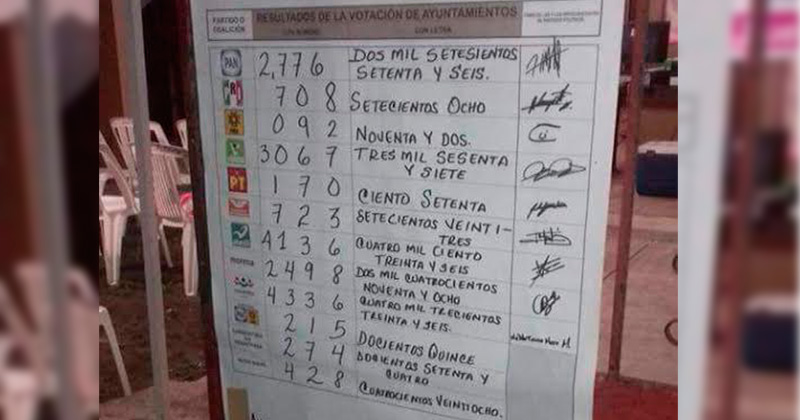 PARTIDO O COALICIÓN
RESULTADOS DE LA VOTACIÓN DE AYUNTAMIENTOS
CON LETRA
PAN 2,776 DOS MIL SETESIENTOS
SETENTA Y SEIS.
PRI 708 SETECIENTOS OCHO
092 NOVENTA Y DOS.
3067 TRES MIL SESENTA
Y SIETE
PT 170 CIENTO SETENTA
723 SETECIENTOS VEINTI-
TRES
4136 CUATRO MIL CIENTO
TREINTA Y SEIS
morena 2498 DOS MIL CUATROCIENTOS
NOVENTA Y OCHO
4336 CUATRO MIL TRECIENTOS
TREINTA Y SEIS.
215 DOCIENTOS QUINCE
274 DOCIENTOS SETENTA Y
CUATRO
428 CUATROCIENTOS VEINTIOCHO.